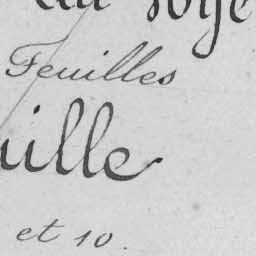 Feuilles
uille
et 10.